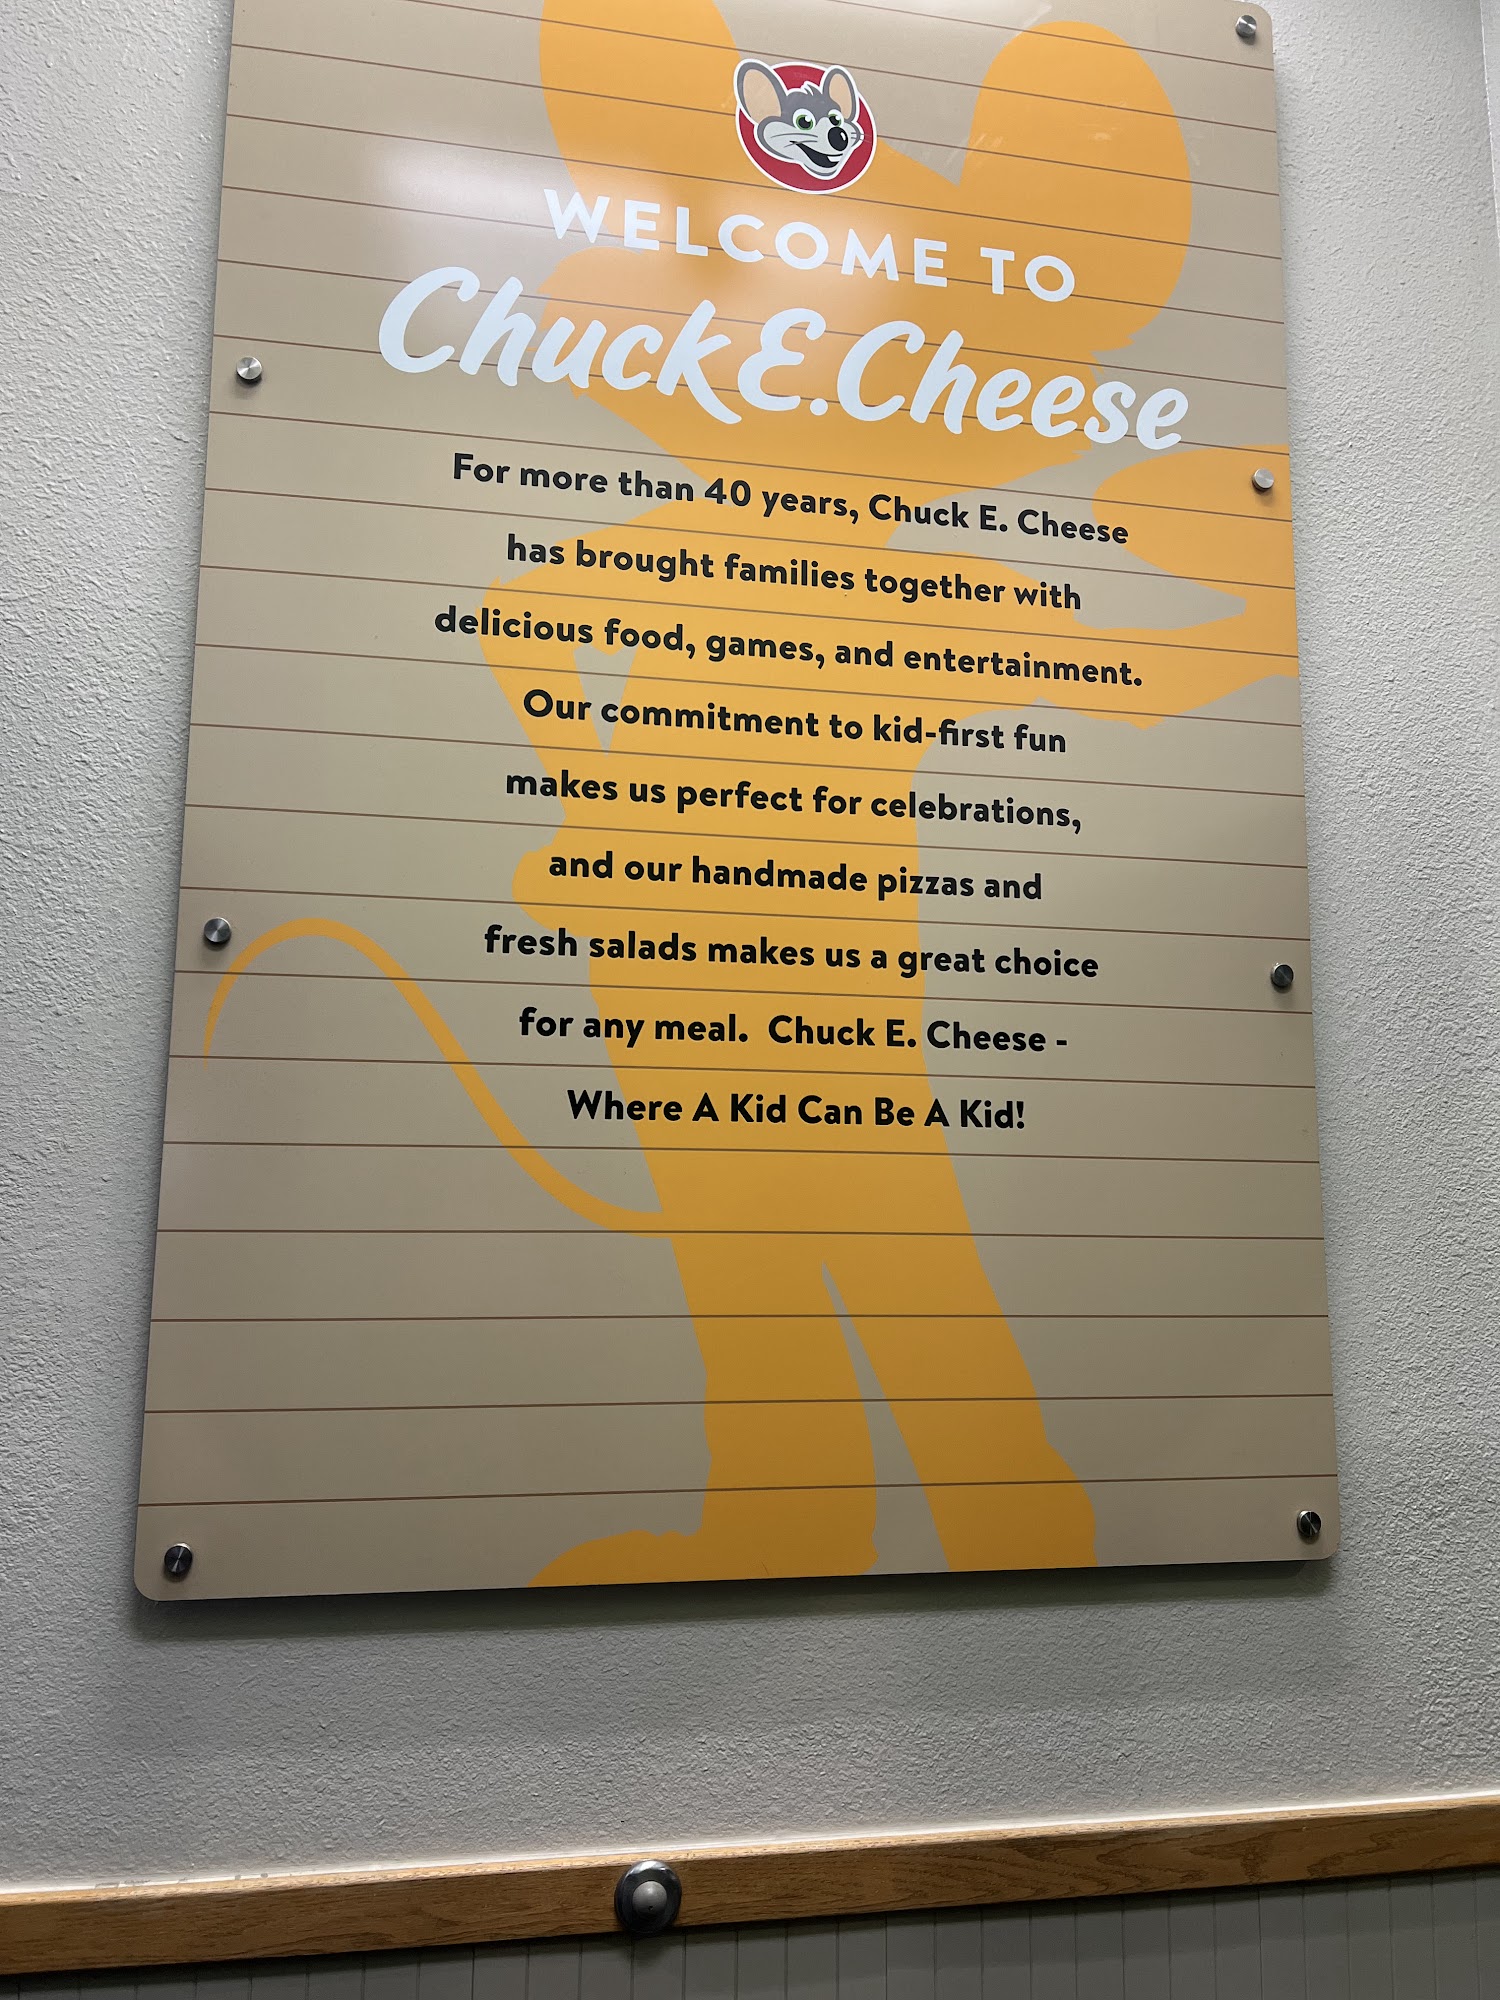 WELCOME TO
Chuck E. Cheese
For more than 40 years, Chuck E. Cheese
has brought families together with
delicious food, games, and entertainment.
Our commitment to kid-first fun
makes us perfect for celebrations,
and our handmade pizzas and
fresh salads makes us a great choice
for any meal.  Chuck E. Cheese -
Where A Kid Can Be A Kid!